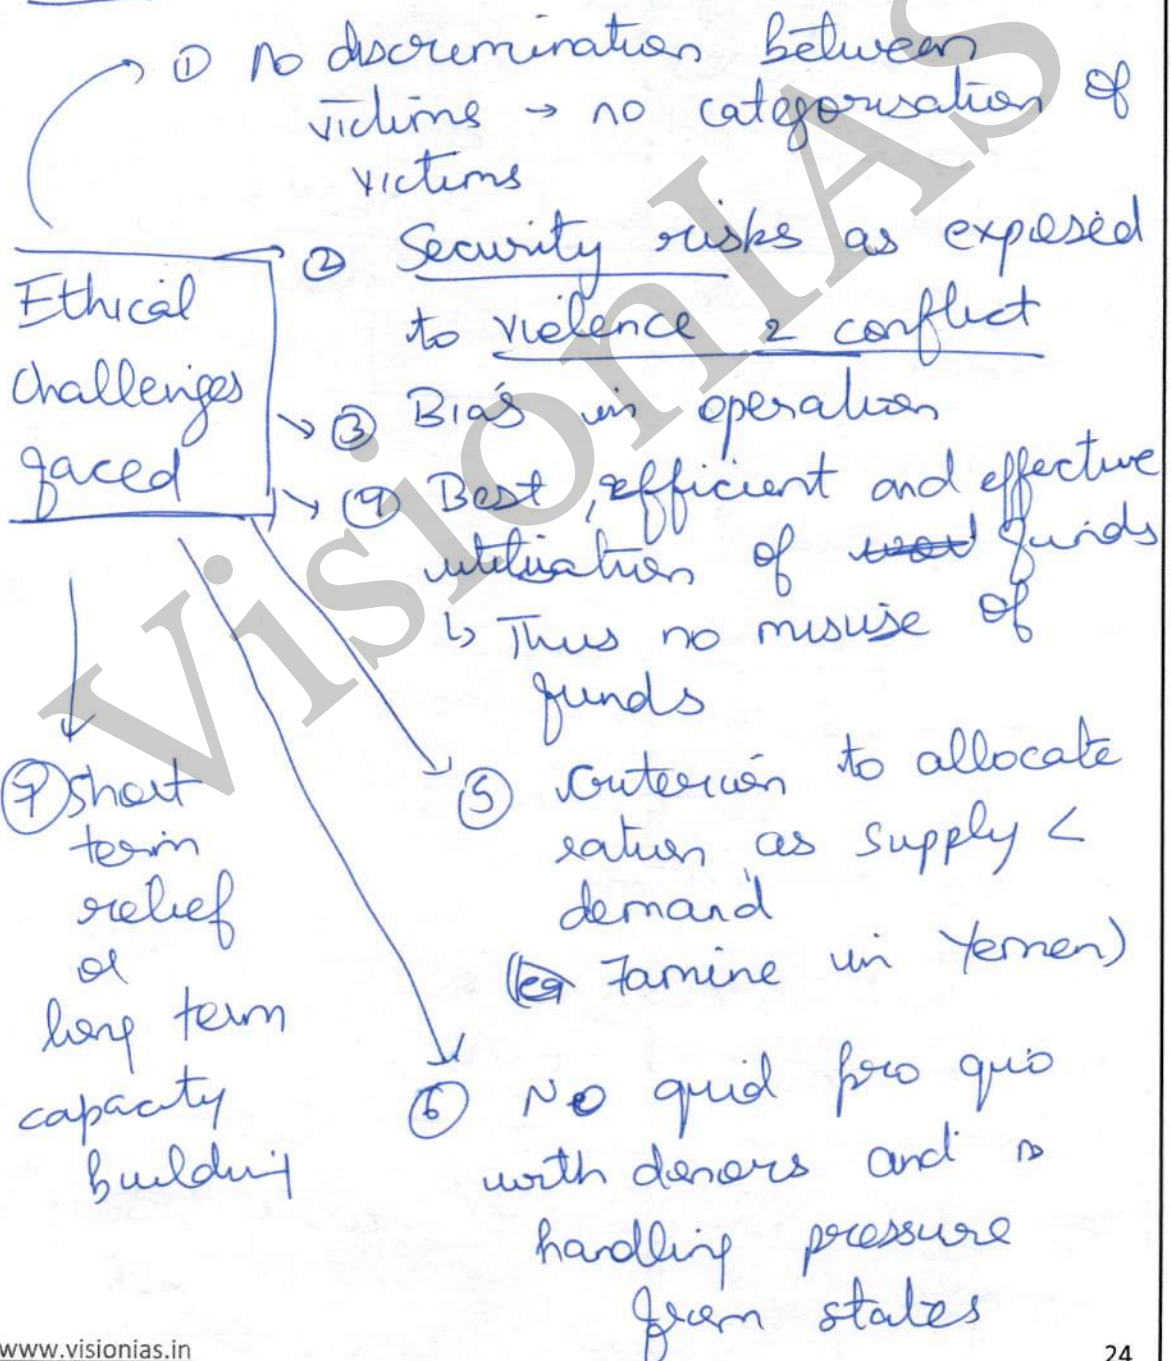 ① No discrimination between
victims → no categorisation of
victims
Ethical
challenges
faced
② Security risks as exposed
to violence & conflict
③ Bias in operation
④ Best, efficient and effective
utilisation of funds
↳ Thus no misuse of
funds
⑤ Criterion to allocate
ration as supply <
demand
(eg Famine in Yemen)
⑥ No quid pro quo
with donors and
handling pressure
from states
⑦ Short
term
relief
or
long term
capacity
building
VisionIAS
www.visionias.in
24